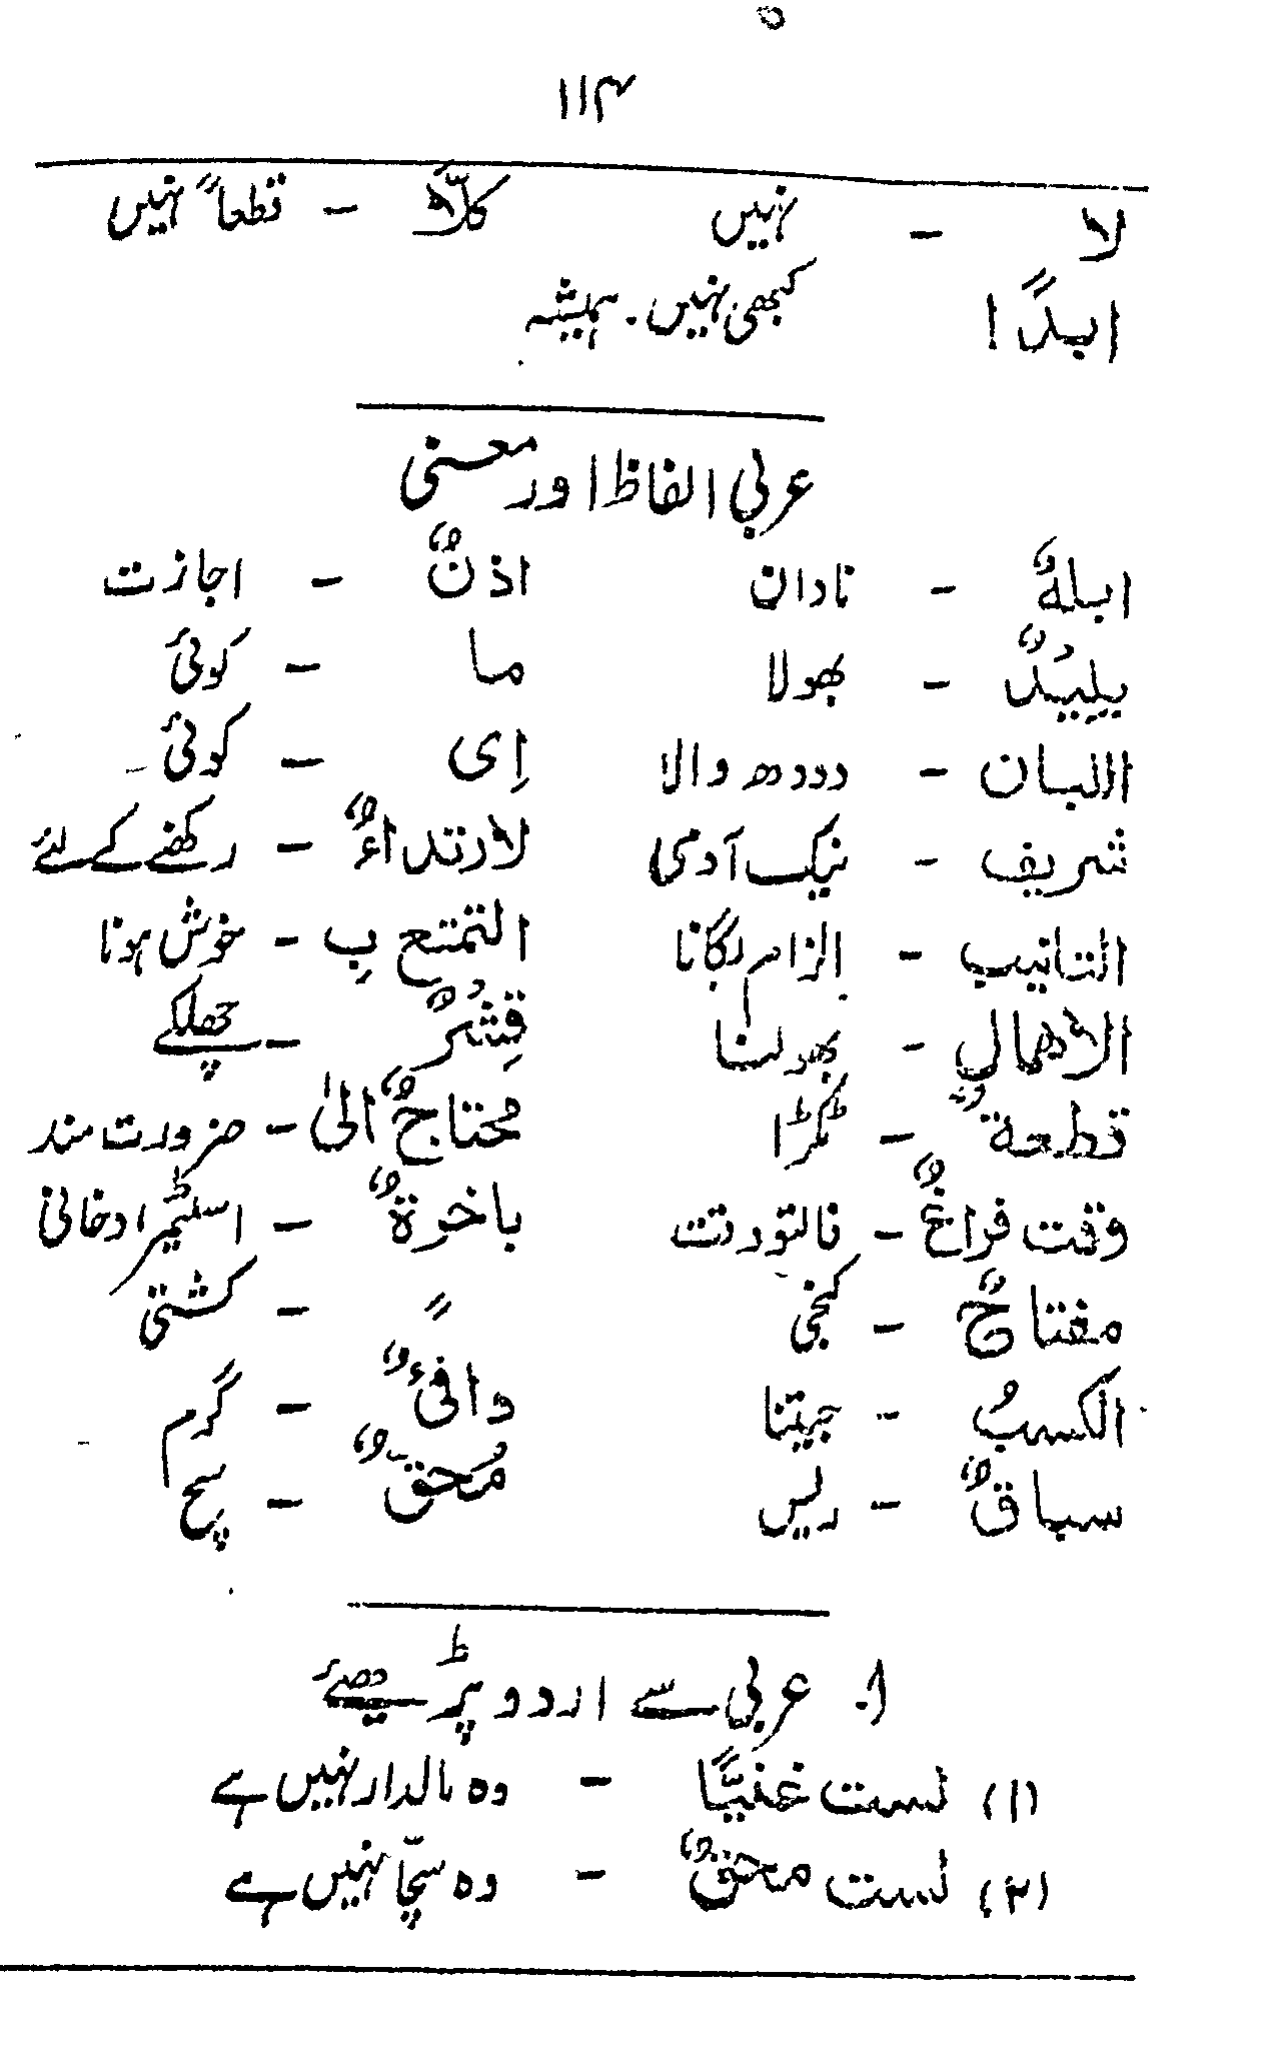 ۱۱۴
لا - نہیں کلّا - قطعاً نہیں
ابداً ! کبھی نہیں۔ ہمیشہ
عربی الفاظ اور معنی
ابلهٌ - نادان اذنٌ - اجازت
بلیدٌ - بھولا ما - کوئی
اللبان - دودھ والا اِی - کوئی
شریف - نیک آدمی لارتداءٌ - رکھنے کے لئے
التانیب - الزام لگانا التمتع بِ - خوش ہونا
الاھمال - بھولنا قِشرٌ - چھلکے
قطعةٌ - ٹکڑا مُحتاجٌ الیٰ - ضرورت مند
وقت فراغٌ - فالتو وقت باخرةٌ - اسٹیمر، دخانی
مفتاحٌ - کنجی 〃 - کشتی
الکسبُ - جیتنا دافیءٌ - گرم
سباقٌ - ریس مُحقٌ - سچ
۱۔ عربی سے اردو پڑھیے
(۱) لست غنیًّا - وہ مالدار نہیں ہے
(۲) لست محقٌ - وہ سچّا نہیں ہے